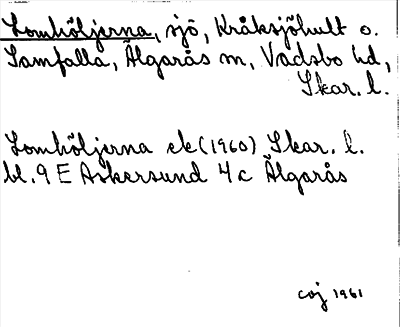 Lomhöljerna, sjö, Kråksjöhult o.
Samfälla, Älgarås sn, Vadsbo hd,
Skar. l.
Lomhöljerna ek (1960) Skar. l.
bl. 9 E Askersund 4c Älgarås
coj 1961